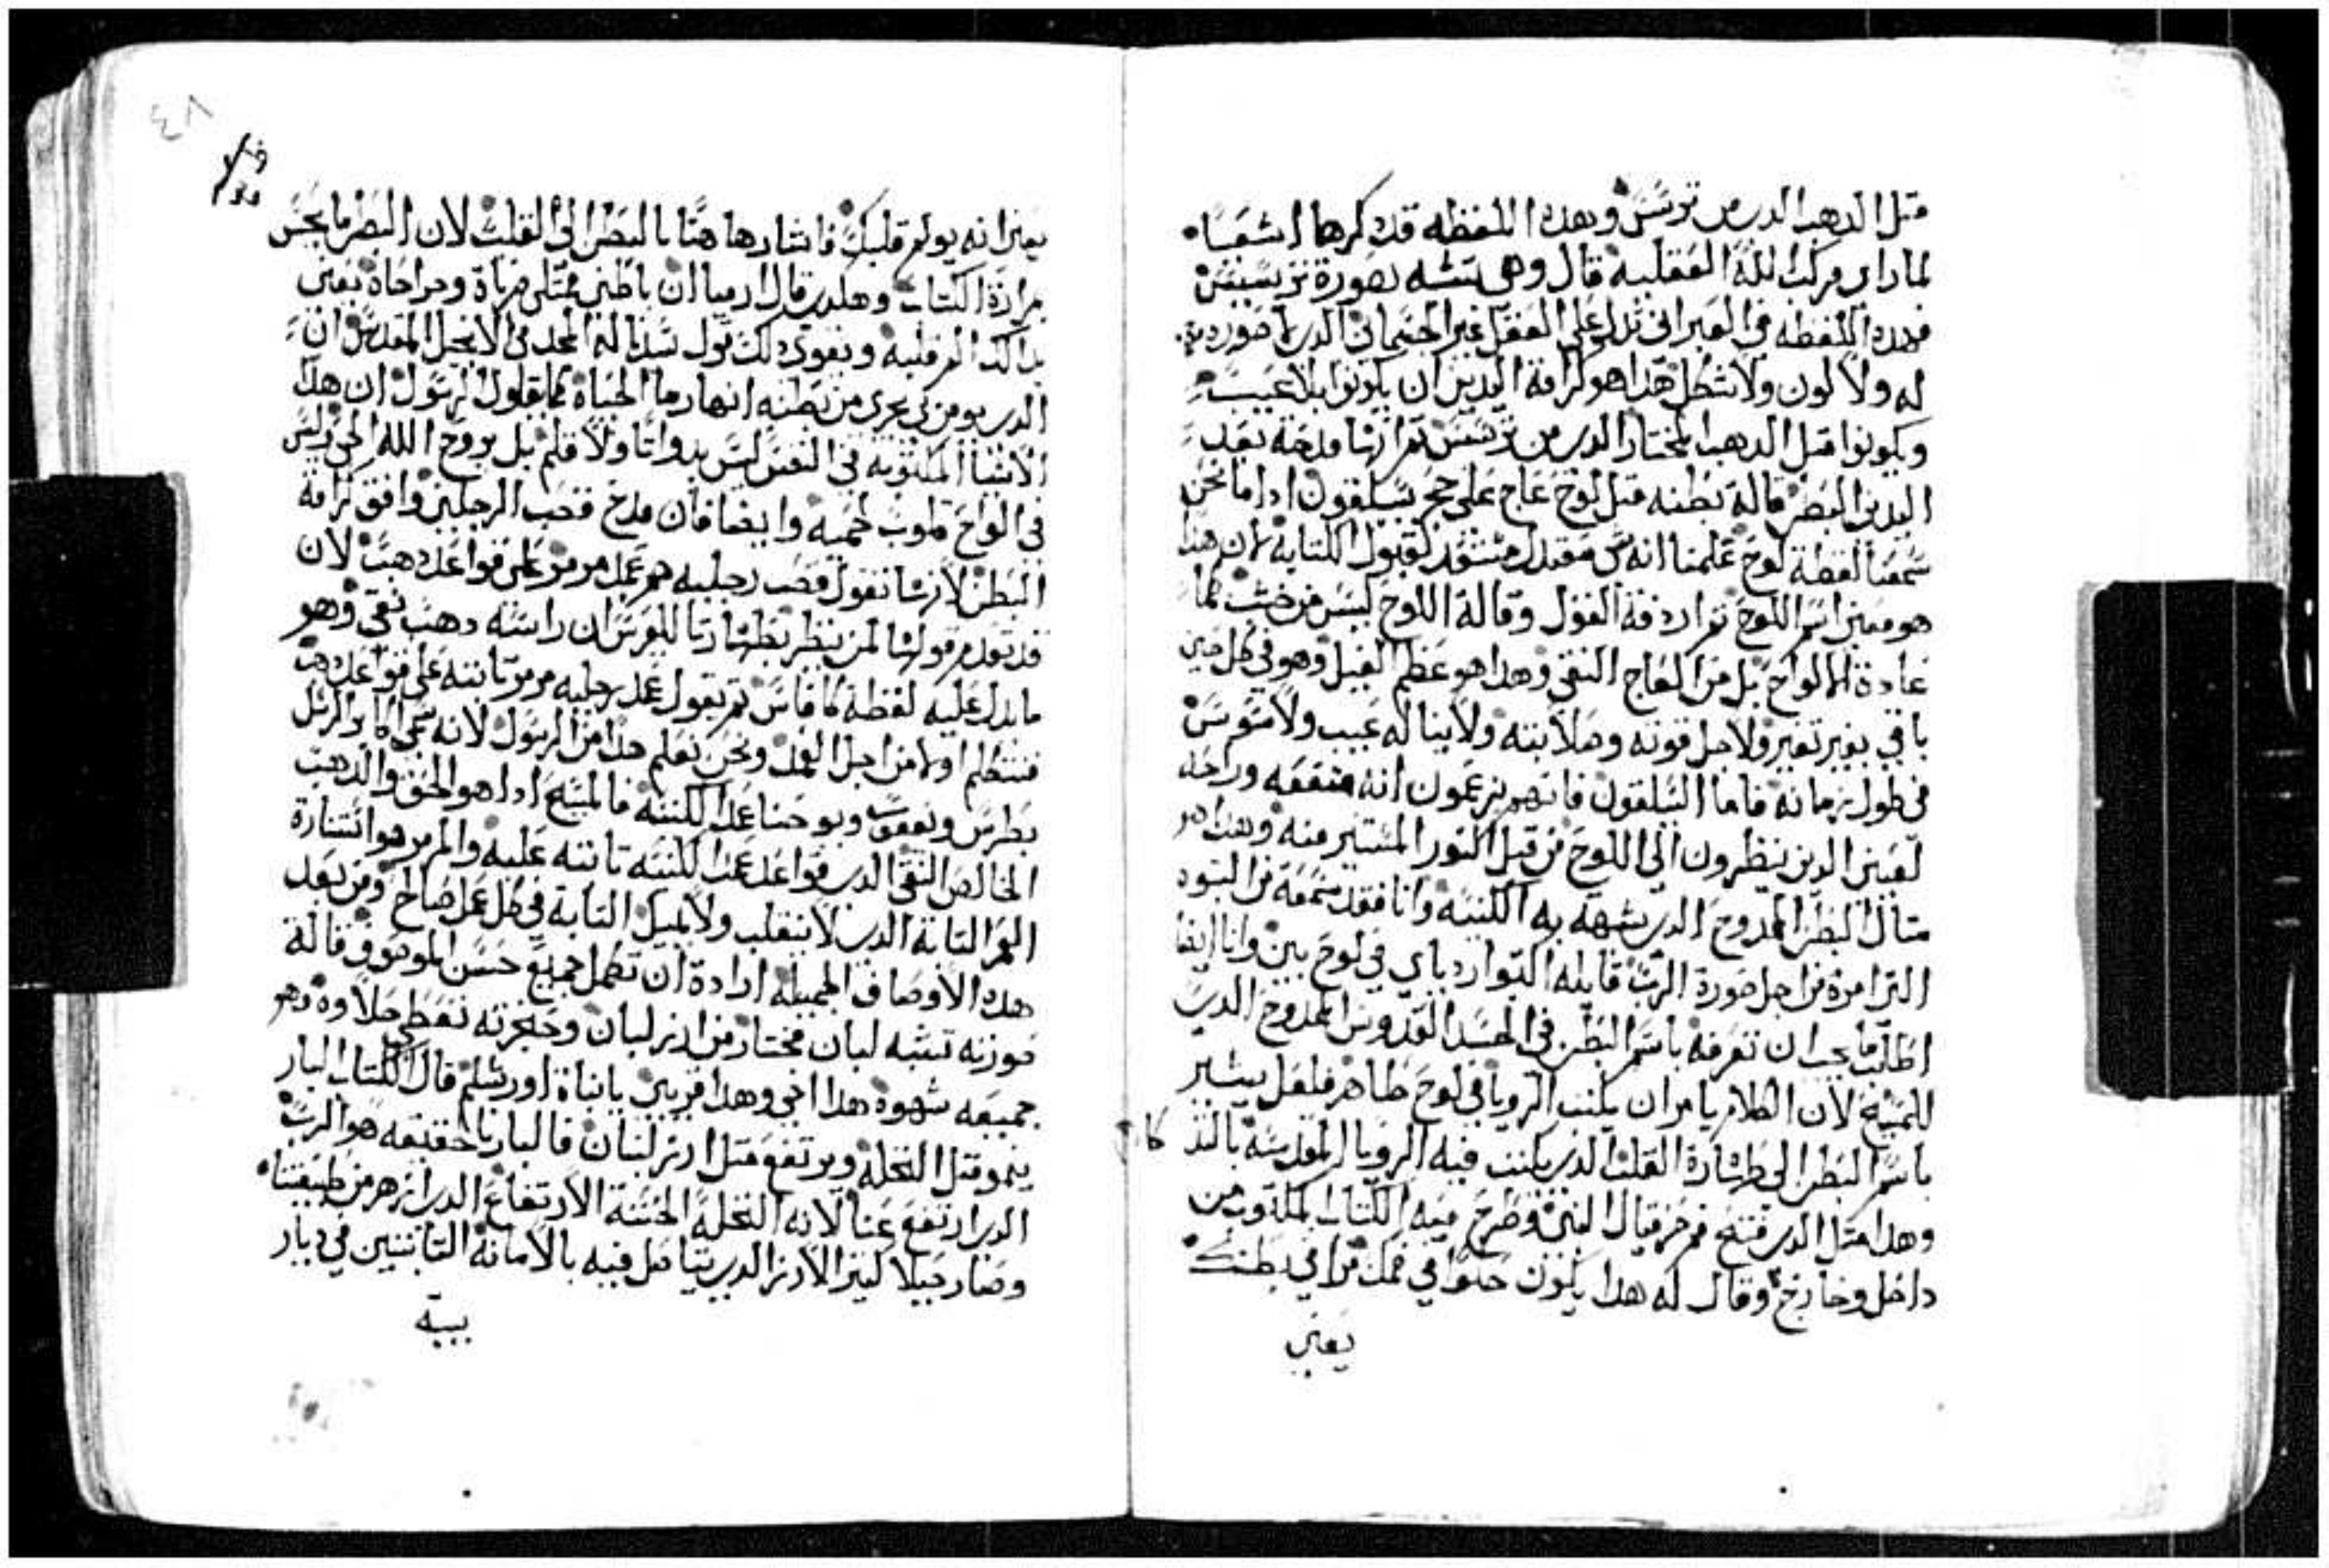 متل الدهب الدى من ترسس وهده اللفظه قد دكرها اشعيا
لما راى مركبت الله العقليه قال وهى تشبه بصورة ترسيس
فهده اللفظه فى العبرانى تدل على العقل غير الجسمانى الدى لا صورة
له ولا لون ولا شكل هدا هو كرامة اليدين ان يكونوا بلا عيب
ويكونوا متل الدهب المختار الدى من ترسس تم انها مدحة بعد
اليدين البطن قالة بطنه متل لوح عاج على حجر سلفون ادا ما نحن
سمعنا لفظة لوح علمنا انه مستعد لقبول الكتابه لان هدا
هو معنى اسم اللوح تم اردفة القول وقالة اللوح ليس من خشب كما
عادة الالواح بل من العاج النقى وهدا هو عظم الفيل وهو فى كل حين
باقى بغير تغير ولاجل قوته وصلابته ولا يناله عيب ولا سوس
فى طول زمانه فاما السلفون فانهم يزعمون انه منفعه وراحه
لعينى الدين ينظرون الى اللوح من قبل النور المستنير منه وهدا هو
متال البطن الممدوح الدى تشبهه به الكنيسه وانا فقد سمعة من النبود
الترامرة من اجل صورة الرب قايله التوارد باى فى لوح بين وانا ايضا
اظلت ما يجب ان تعرفه باسم البطن فى الجسد القدوس الممدوح الدى
للمسيح لان الكلام يامر ان يكتب الرويا فى لوح ظاهر فلعل يشير
باسم البطن الى طهارة القلب الدى يكتب فيه الرويا المقدسه بالتد
كا
وهدا متل الدى فتح فم حزقيال النبى وطرح فيه الكتاب المكتوب من
داخل وخارج وقال له هدا يكون حلوا فى فمك مرا فى بطنك
يعنى
٤٨
يعنى انه يولم قلبك فاشارها هنا بالبطن الى القلب لان البطن ما يحس
مرارة الكتاب وهكدى قال ارميا ان باطنى ممتلى مرباة وجراحاة يعنى
بدالك المر قلبه ويقوى دلك قول سيدنا له المجد فى الانجيل المقدس ان
الدى يومن بى يجرى من بطنه انهار ما الحياة كما يقول الرسول ان هدا
الاشيا المكتوبه فى النفس ليس بدواتا ولا قلم بل بروح الله الحى وليس
فى الواح قلوب لحميه وايضا فان مدح قصب الرجلين وافق كرامة
البطن لانها تقول قصب رجليه هم عمد مرمر على قواعد دهب لان
قد تقدم قولها لمن ينظر بطهارتا للعرس ان راسه دهب نقى وهو
ما يدل عليه لفظة كافاس تم يقول عمد رجليه مرمر تابته على قواعد دهب
فنتكلم اولا من اجل العمد ونحن نعلم هدا من الرسول لانه سمى اكابر الرسل
بطرس ويعقوب ويوحنا عمد الكنيسه فالمسيح ادا هو الحق والدهب
الخالص النقى الدى قواعد عمد الكنيسه تابته عليه والمرمر هو استنارة
العمد التابته الدى لا تنقلب ولا تميل التابة فى كل عمل صالح ومن بعد
هده الاوصاف الجميله ارادة ان تكمل جميع حسن الموصوف قالة
صورته تشبه لبان مختار من ارز لبنان وحنجرته تقطر حلاوه وهو
جميعه شهوة هدا اخى وهدا قريبى يا بناة اورشلم قال الكتاب البار
ينمو متل النخله ويرتفع متل ارز لبنان فالبار بالحقيقه هو الرب
الدى ارتفع عنا لانه النخله الحسنة الارتفاع الدى ازهر من طبيعتنا
وصار جبلا ليتر الارز الدى يتاصل فيه بالامانه التابتين فى ديار
بيته